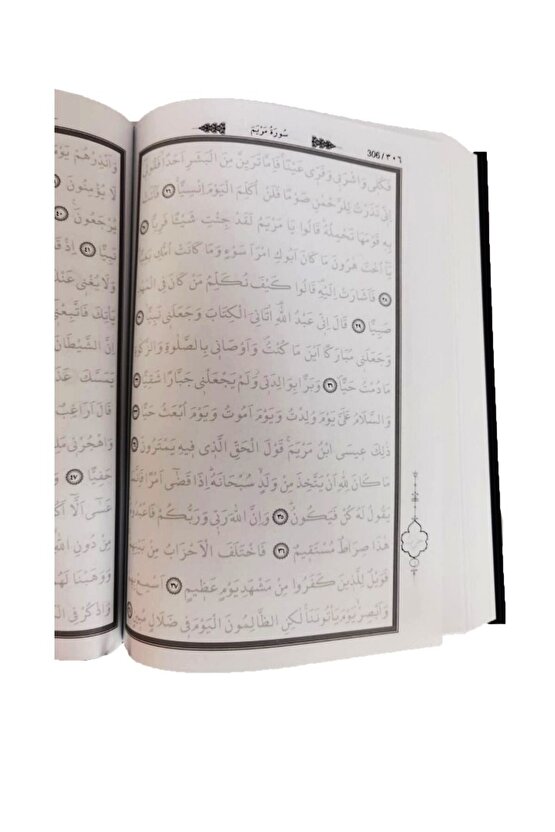 سُورَةُ مَرْيَمَ
306/٣٠٦
فَكُلٖى وَاشْرَبٖى وَقَرّٖى عَيْنًا فَاِمَّا تَرَيِنَّ مِنَ الْبَشَرِ اَحَدًا فَقُولٖى
اِنّٖى نَذَرْتُ لِلرَّحْمٰنِ صَوْمًا فَلَنْ اُكَلِّمَ الْيَوْمَ اِنْسِيًّا ٢٦ فَاَتَتْ
بِهٖ قَوْمَهَا تَحْمِلُهُ قَالُوا يَا مَرْيَمُ لَقَدْ جِئْتِ شَيْئًا فَرِيًّا ٢٧
يَا اُخْتَ هٰرُونَ مَا كَانَ اَبُوكِ امْرَاَ سَوْءٍ وَمَا كَانَتْ اُمُّكِ بَغِيًّا
٢٨ فَاَشَارَتْ اِلَيْهِ قَالُوا كَيْفَ نُكَلِّمُ مَنْ كَانَ فِى الْمَهْدِ
صَبِيًّا ٢٩ قَالَ اِنّٖى عَبْدُ اللّٰهِ اٰتَانِىَ الْكِتَابَ وَجَعَلَنٖى نَبِيًّا ٣٠
وَجَعَلَنٖى مُبَارَكًا اَيْنَ مَا كُنْتُ وَاَوْصَانٖى بِالصَّلٰوةِ وَالزَّكٰوةِ
مَا دُمْتُ حَيًّا ٣١ وَبَرًّا بِوَالِدَتٖى وَلَمْ يَجْعَلْنٖى جَبَّارًا شَقِيًّا ٣٢
وَالسَّلَامُ عَلَىَّ يَوْمَ وُلِدْتُ وَيَوْمَ اَمُوتُ وَيَوْمَ اُبْعَثُ حَيًّا ٣٣
ذٰلِكَ عٖيسَى ابْنُ مَرْيَمَ قَوْلَ الْحَقِّ الَّذٖى فٖيهِ يَمْتَرُونَ ٣٤
مَا كَانَ لِلّٰهِ اَنْ يَتَّخِذَ مِنْ وَلَدٍ سُبْحَانَهُ اِذَا قَضٰى اَمْرًا فَاِنَّمَا
يَقُولُ لَهُ كُنْ فَيَكُونُ ٣٥ وَاِنَّ اللّٰهَ رَبّٖى وَرَبُّكُمْ فَاعْبُدُوهُ
هٰذَا صِرَاطٌ مُسْتَقٖيمٌ ٣٦ فَاخْتَلَفَ الْاَحْزَابُ مِنْ بَيْنِهِمْ
فَوَيْلٌ لِلَّذٖينَ كَفَرُوا مِنْ مَشْهَدِ يَوْمٍ عَظٖيمٍ ٣٧ اَسْمِعْ بِهِمْ
وَاَبْصِرْ يَوْمَ يَأْتُونَنَا لٰكِنِ الظَّالِمُونَ الْيَوْمَ فٖى ضَلَالٍ مُبٖينٍ
وَاَنْذِرْهُمْ يَوْمَ
لَا يُؤْمِنُونَ
يُرْجَعُونَ ٤٠
نَبِيًّا ٤١ اِذْ قَا
وَلَا يُغْنٖى عَنْكَ
يَأْتِكَ فَاتَّبِعْنٖى
اِنَّ الشَّيْطَانَ
يَمَسَّكَ عَذَا
قَالَ اَرَاغِبٌ
وَاهْجُرْنٖى مَلِ
حَفِيًّا ٤٧
عَسٰى اَلَّا اَكُ
مِنْ دُونِ اللّٰهِ
وَوَهَبْنَا لَهُمْ
وَاذْكُرْ فِى الْ